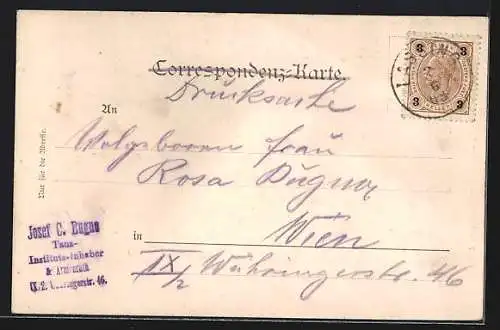 Correspondenz-Karte.
Drucksache
3 3
3 3
An
Wolgeboren Frau
Rosa Dugna
in Wien
IX/2 Währingerstr. 46
Nur für die Adresse.
Josef C. Eugna
Tanz-
Instituts-Inhaber
IX. 2. Währingerstr. 46.